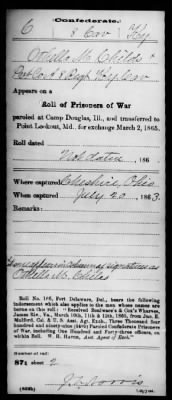 Confederate.
C 8 Cav Ky
Othello M. Childs
Appears on a
Roll of Prisoners of War
paroled at Camp Douglas, Ill., and transferred to
Point Lookout, Md., for exchange March 2, 1865.
Roll dated
Not dated 186
Where captured Cheshire, Ohio
When captured July 20, 1863.
Remarks:
signature as
Othello M. Childs
Roll No. 186, Fort Delaware, Del., bears the following
indorsement which also applies to the men whose names are
borne on this roll: "Received Boulware's & Cox's Wharves,
James Riv., Va., March 10th, 11th & 12th, 1865, from Jno. E.
Mulford, Col. & U. S. Asst. Agt. Exch., Three Thousand four
hundred and ninety-nine Paroled Confederate Prisoners of
War, including One Hundred and Forty-three officers, on
within Roll. W. H. Hatch, Asst. Agent of Exch."
Number of roll:
87; sheet 2
Copyist.